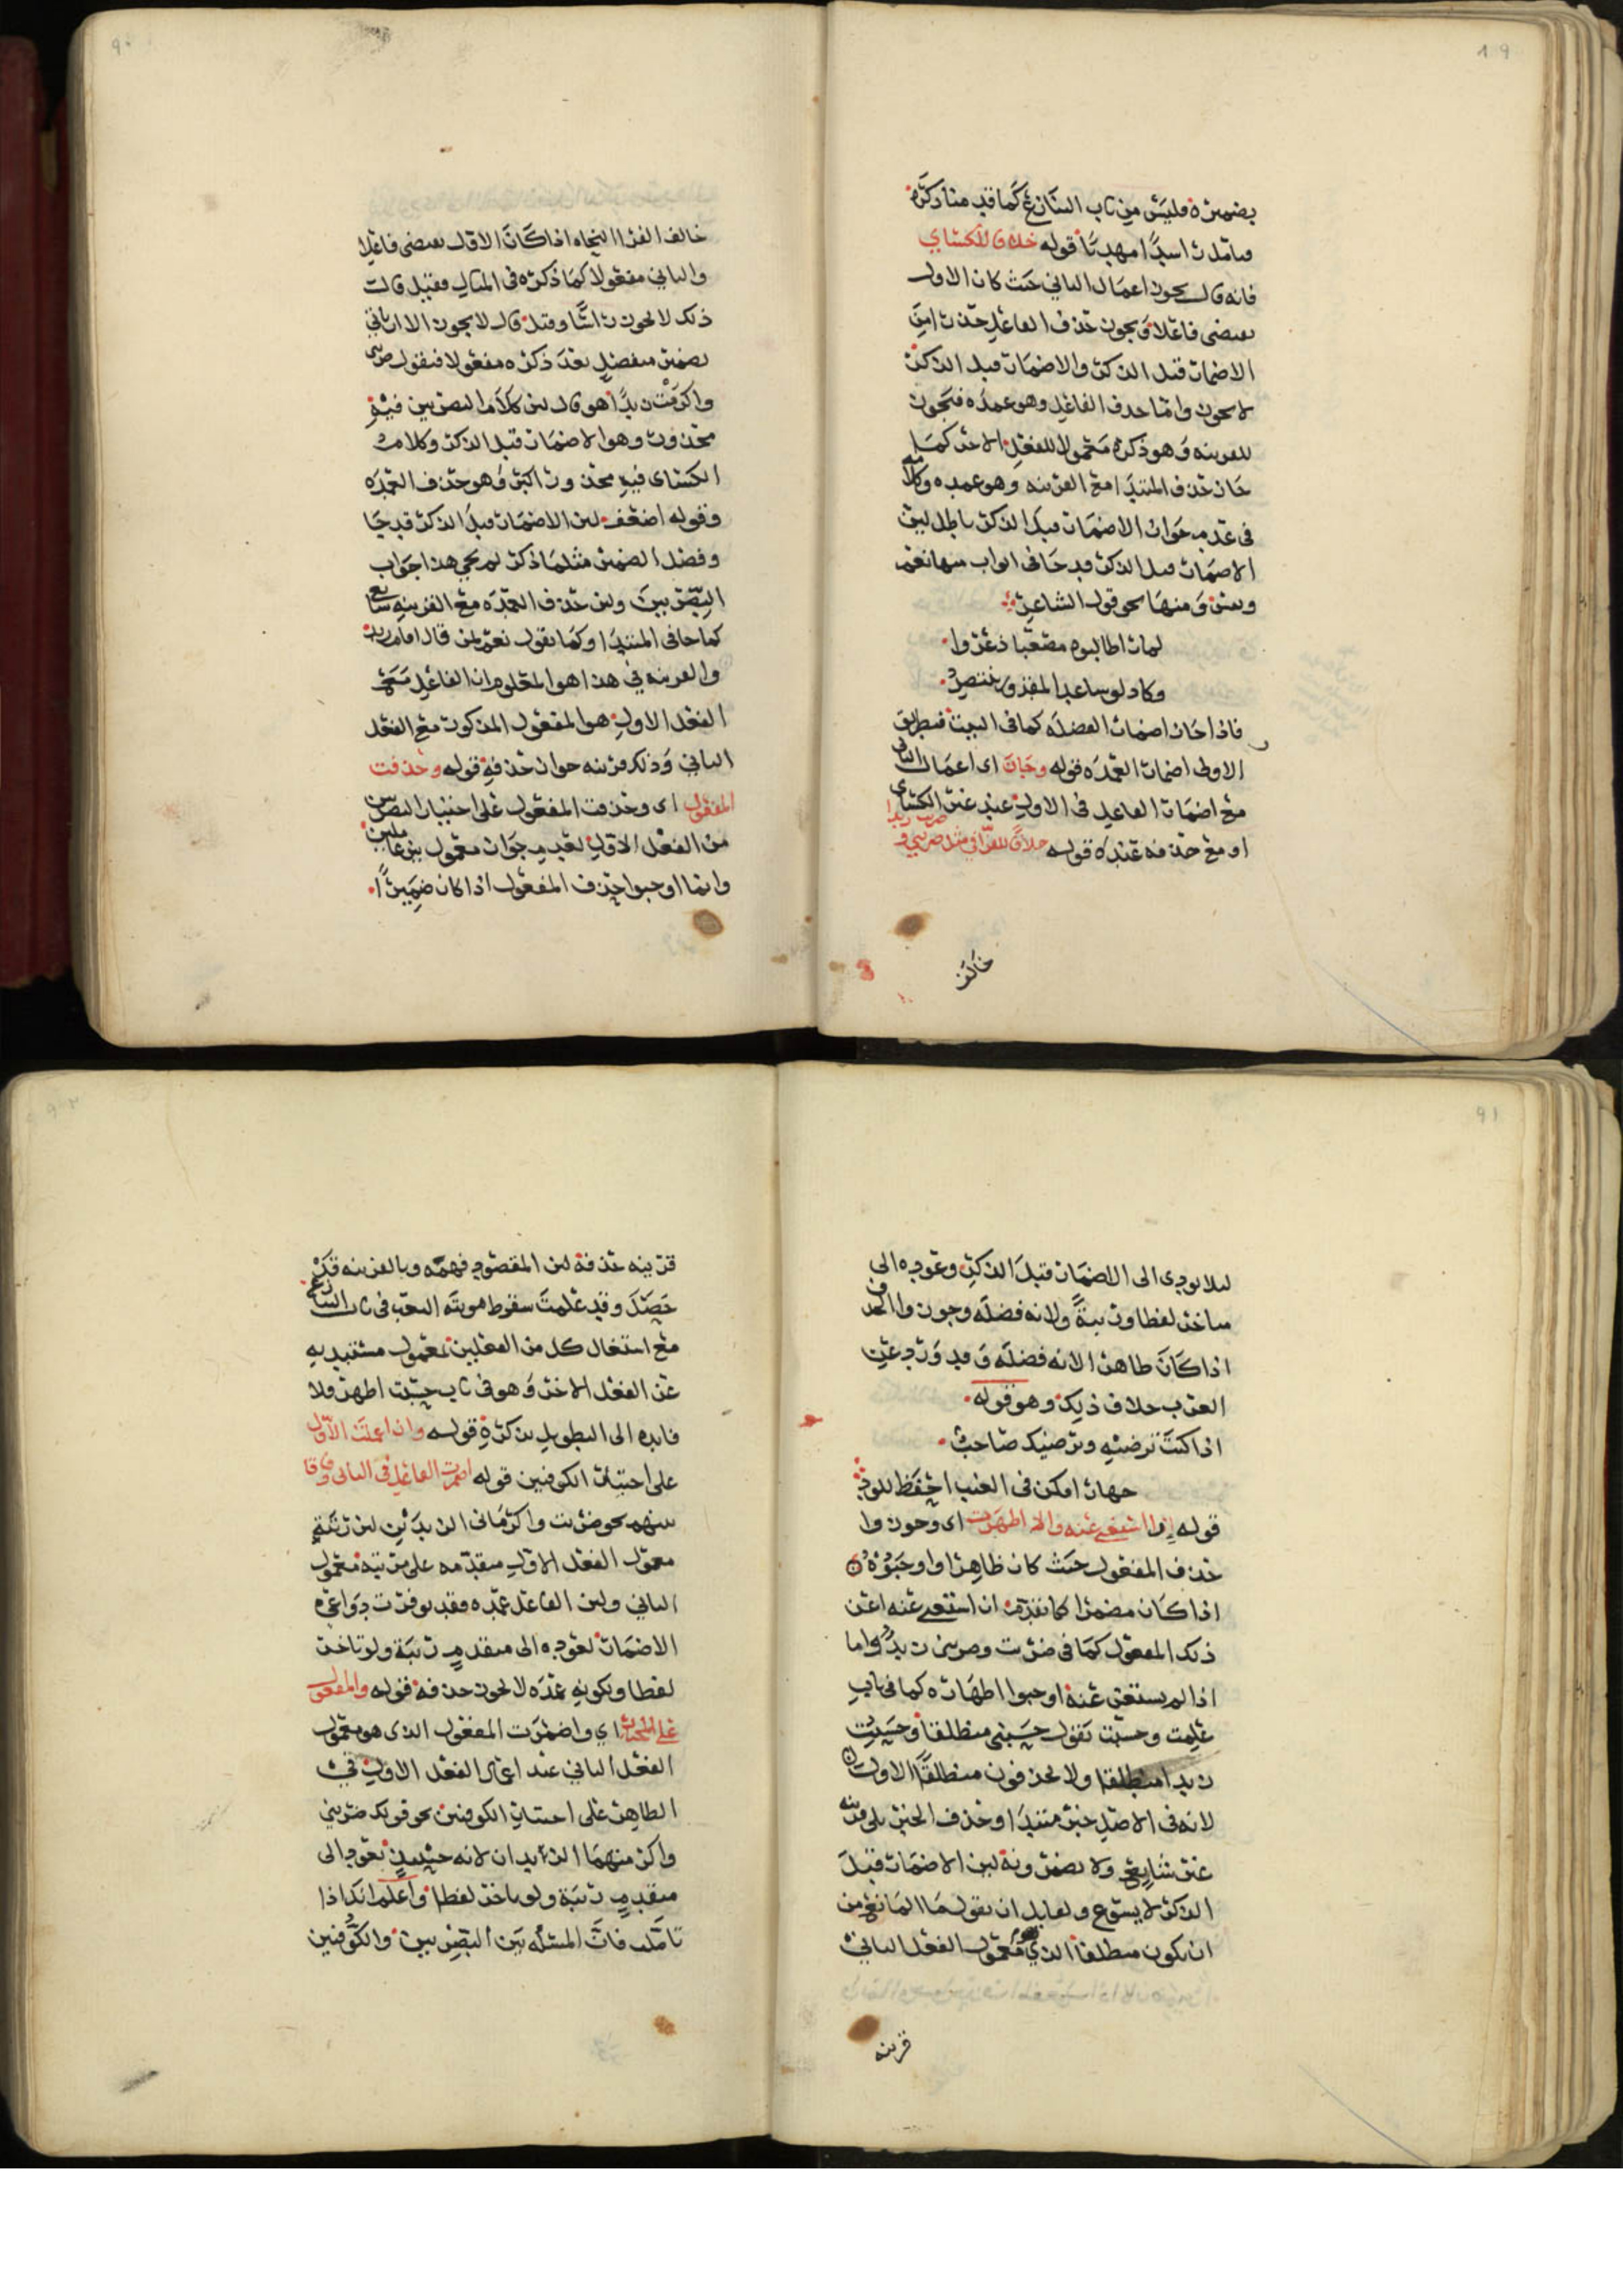 ٨٩
بضميره فليس من باب التنازع كما قدمنا ذكره
فتأمله راشدا مهديا قوله خلافا للكسائي
فانه قال يجوز اعمال الثاني حيث كان الاول
يقتضي فاعلا ويجوز حذف الفاعل حذرا من
الاضمار قبل الذكر والاضمار قبل الذكر
لا يجوز واما حذف الفاعل وهو عمده فيجوز
للقرينه وهو ذكره معمولا للفعل الاخر كما
جاز حذف المبتدا مع القرينه وهو عمده وكلامه
في عدم جواز الاضمار قبل الذكر باطل لان
الاضمار قبل الذكر قد جا في ابواب منها نعم
وبئس ومنها نحو قول الشاعر
لما راى طالبوه مصعبا ذعروا
وكاد لو ساعد المقدور ينتصر
فاذا جاز اضمار الفضله كما في البيت فبطريق
الاولى اضمار العمده قوله وجاز اي اعمال الثاني
مع اضمار الفاعل في الاول عند غير الكسائي
او مع حذفه عنده قوله خلافا للفرا في مثل ضربني و
ضربت زيدا
خالف
٩٠
خالف الفرا النحاه اذا كان الاول يقتضي فاعلا
والثاني مفعولا كما ذكره في المثال فقيل قال
ذلك لا يجوز راسا وقيل قال لا يجوز الا ان تاتي
بضمير منفصل بعد ذكره مفعولا فيقول ضربني
واكرمت زيدا هو قال لان كلام البصريين فيه
محذور وهو الاضمار قبل الذكر وكلام
الكسائي فيه محذور اكبر وهو حذف العمده
وقوله اضعف لان الاضمار قبل الذكر قد جا
وفصل الضمير مثلما ذكر لم يجي هذا جواب
البصريين ولان حذف العمده مع القرينه شايع
كما جا في المبتدا وكما نقول نعم لمن قال اقام زيد
والقرينه في هذا هو المعلوم ان الفاعل مع
الفعل الاول هو المفعول المذكور مع الفعل
الثاني وذلك قرينه جواز حذفه قوله وحذفت
المفعول اي وحذفت المفعول على اختيار البصريين
من الفعل الاول لعدم جواز معمول بين عاملين
وانما اوجبوا حذف المفعول اذا كان ضميرا
٩١
ليلا يودي الى الاضمار قبل الذكر وعوده الى
متاخر لفظا ورتبة ولانه فضله وجوزوا الحذف
اذا كان ظاهرا لانه فضله وقد ورد عن
العرب خلاف ذلك وهو قوله
اذا كنت ترضيه ويرضيك صاحب
جهارا فكن في الغيب احفظ للود
قوله ان استغني عنه والا اظهرت اي وجوزوا
حذف المفعول حيث كان ظاهرا واوجبوه
اذا كان مضمرا كما تقدم ان استغني عنه اعني
ذلك المفعول كما في ضربت وضربني زيد واما
اذا لم يستغن عنه اوجبوا اظهاره كما في باب
علمت وحسبت تقول حسبني منطلقا وحسبت
زيدا منطلقا ولا يحذفون منطلقا الاول
لانه في الاصل خبر مبتدا وحذف الخبر بلا قرينه
غير شايع ولا يضمرونه لان الاضمار قبل
الذكر لا يسوغ ولقايل ان يقول ما المانع من
ان يكون منطلقا الذي هو معمول الفعل الثاني
قرينه
٩٢
قرينه حذفه لان المقصود فهمه وبالقرينه قد
حصل وقد علمت سقوط مونة التعب في باب التنازع
مع استغال كل من الفعلين بمعمول مستبد به
عن الفعل الاخر وهو في باب حسبت اظهر ولا
فايده الى التطويل بذكره قوله وان اعملت الاول
على اختيار الكوفيين قوله اضمرت الفاعل في الثاني وفاقا
بينهم نحو ضربت واكرماني الزيدين لان رتبة
معمول الفعل الاول متقدمه على مرتبه معمول
الثاني ولان الفاعل عمده فقد توفرت دواعي
الاضمار لعوده الى متقدم رتبة ولو تاخر
لفظا ولكونه عمده لا يجوز حذفه قوله والمفعول
على المختار اي واضمرت المفعول الذي هو معمول
الفعل الثاني عند اعمال الفعل الاول في
الظاهر على اختيار الكوفيين نحو قولك ضربني
واكرمتهما الزيدان لانه حينئذ يعود الى
متقدم رتبة ولو تاخر لفظا واعلم انك اذا
تاملت فان المسئله بين البصريين والكوفيين